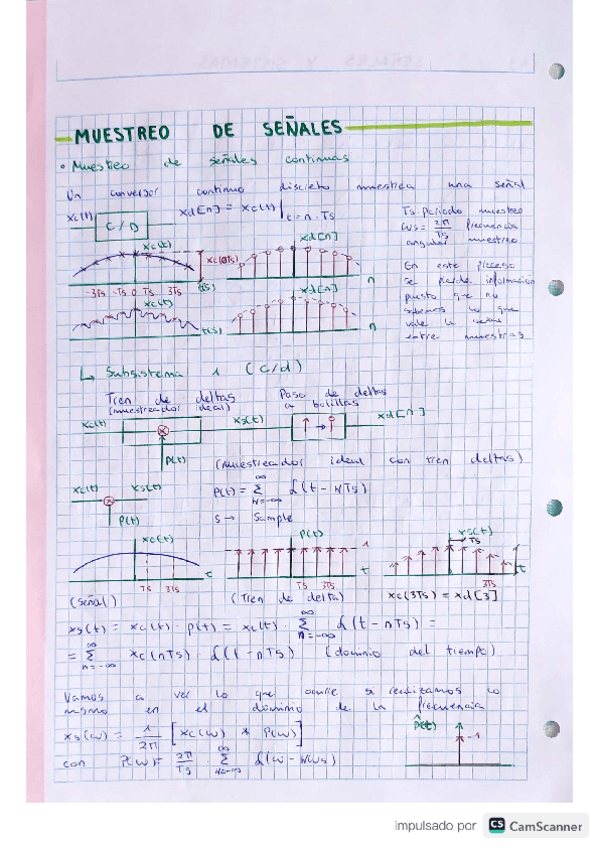 MUESTREO DE SEÑALES
• Muestreo de señales continuas
Un conversor continuo discreto muestrea una señal
xc(t) C/D xd[n] = xc(t)|t=n·Ts
Ts período muestreo
ws = 2π/Ts frecuencia
angular muestreo
xc(t) xc(3Ts) xd[n]
-3Ts -Ts 0 Ts 3Ts t(s) n
xc(t) xd[n]
t(s) n
En este proceso
se pierde información
puesto que no
sabemos lo que
vale la
entre muestras
↳ Subsistema 1 (C/d)
Tren de deltas Paso de deltas
(muestreador ideal) a bolillas
xc(t) xs(t) xd[n]
p(t) (muestreador ideal con tren deltas)
xc(t) xs(t) p(t) = ∞Σn=-∞ δ(t - nTs)
p(t) s → Sample
xc(t) p(t) 1 xs(t) Ts
Ts 3Ts t Ts 3Ts t 3Ts t
(señal) (Tren de delta) xc(3Ts) = xd[3]
xs(t) = xc(t) · p(t) = xc(t) · ∞Σn=-∞ δ(t - nTs) =
= ∞Σn=-∞ xc(nTs) · δ(t - nTs) (dominio del tiempo)
Vamos a ver lo que ocurre si realizamos lo
mismo en el dominio de la frecuencia
xs(w) = 1/2π [xc(w) * P(w)]
con P(w) = 2π/Ts · ∞Σn=-∞ δ(w - nws)
1
impulsado por CS CamScanner